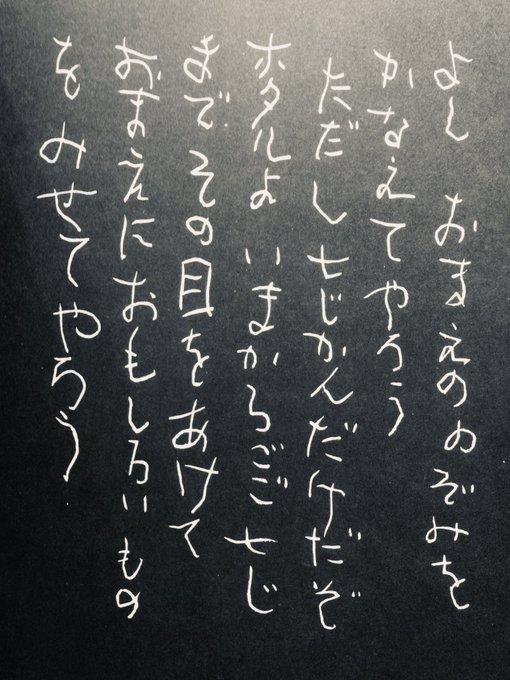 よし おまえののぞみを
かなえてやろう
ただし七じかんだけだぞ
ホタルよ いまからごご七じ
まで その目をあけて
おまえにおもしろいもの
をみせてやろう